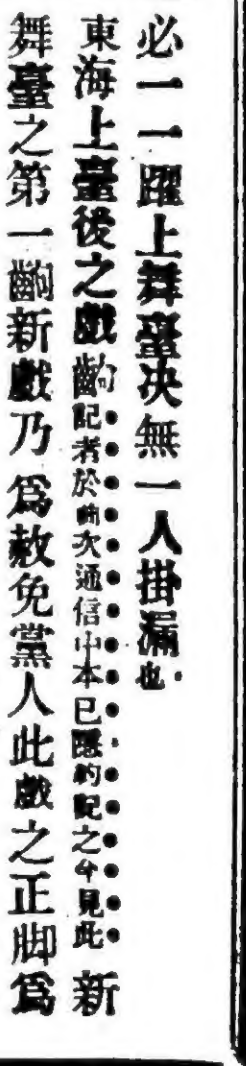 必一一躍上舞臺决無一人掛漏也
東海上臺後之戲齣記者於前次通信中本已隱約記之今見此新
舞臺之第一齣新戲乃爲赦免黨人此戲之正脚爲